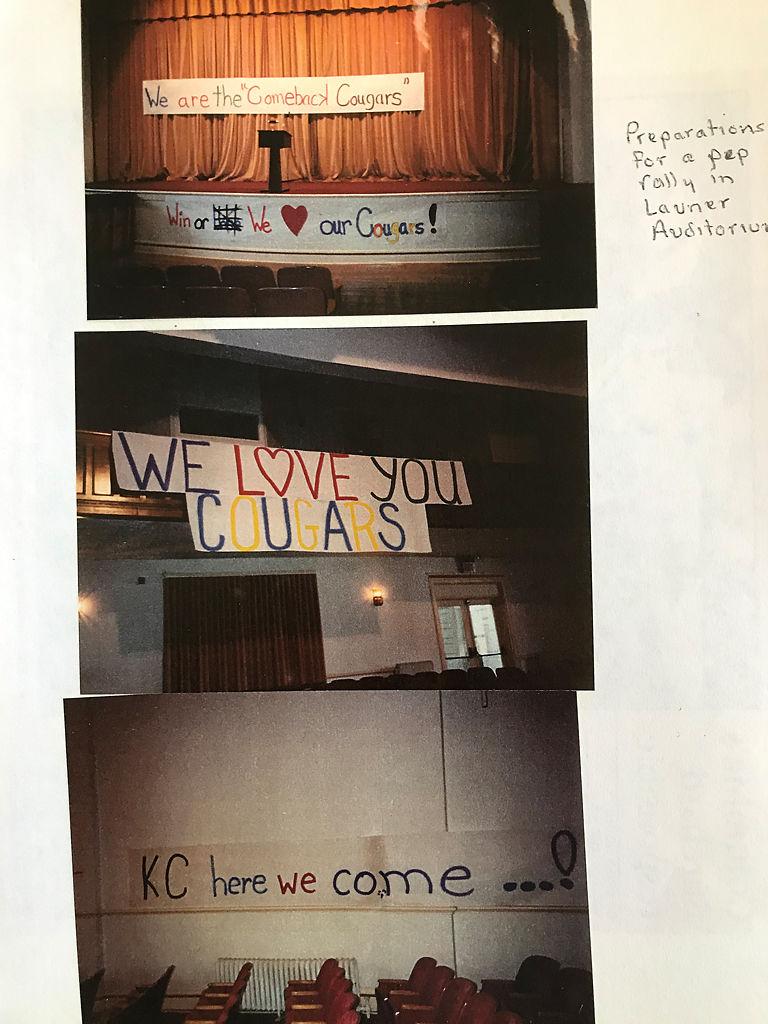 We are the "Comeback Cougars"
Win or We ♥ our Cougars!
Preparations
for a pep
rally in
Launer
Auditorium
WE LOVE YOU
COUGARS
KC here we come ....!